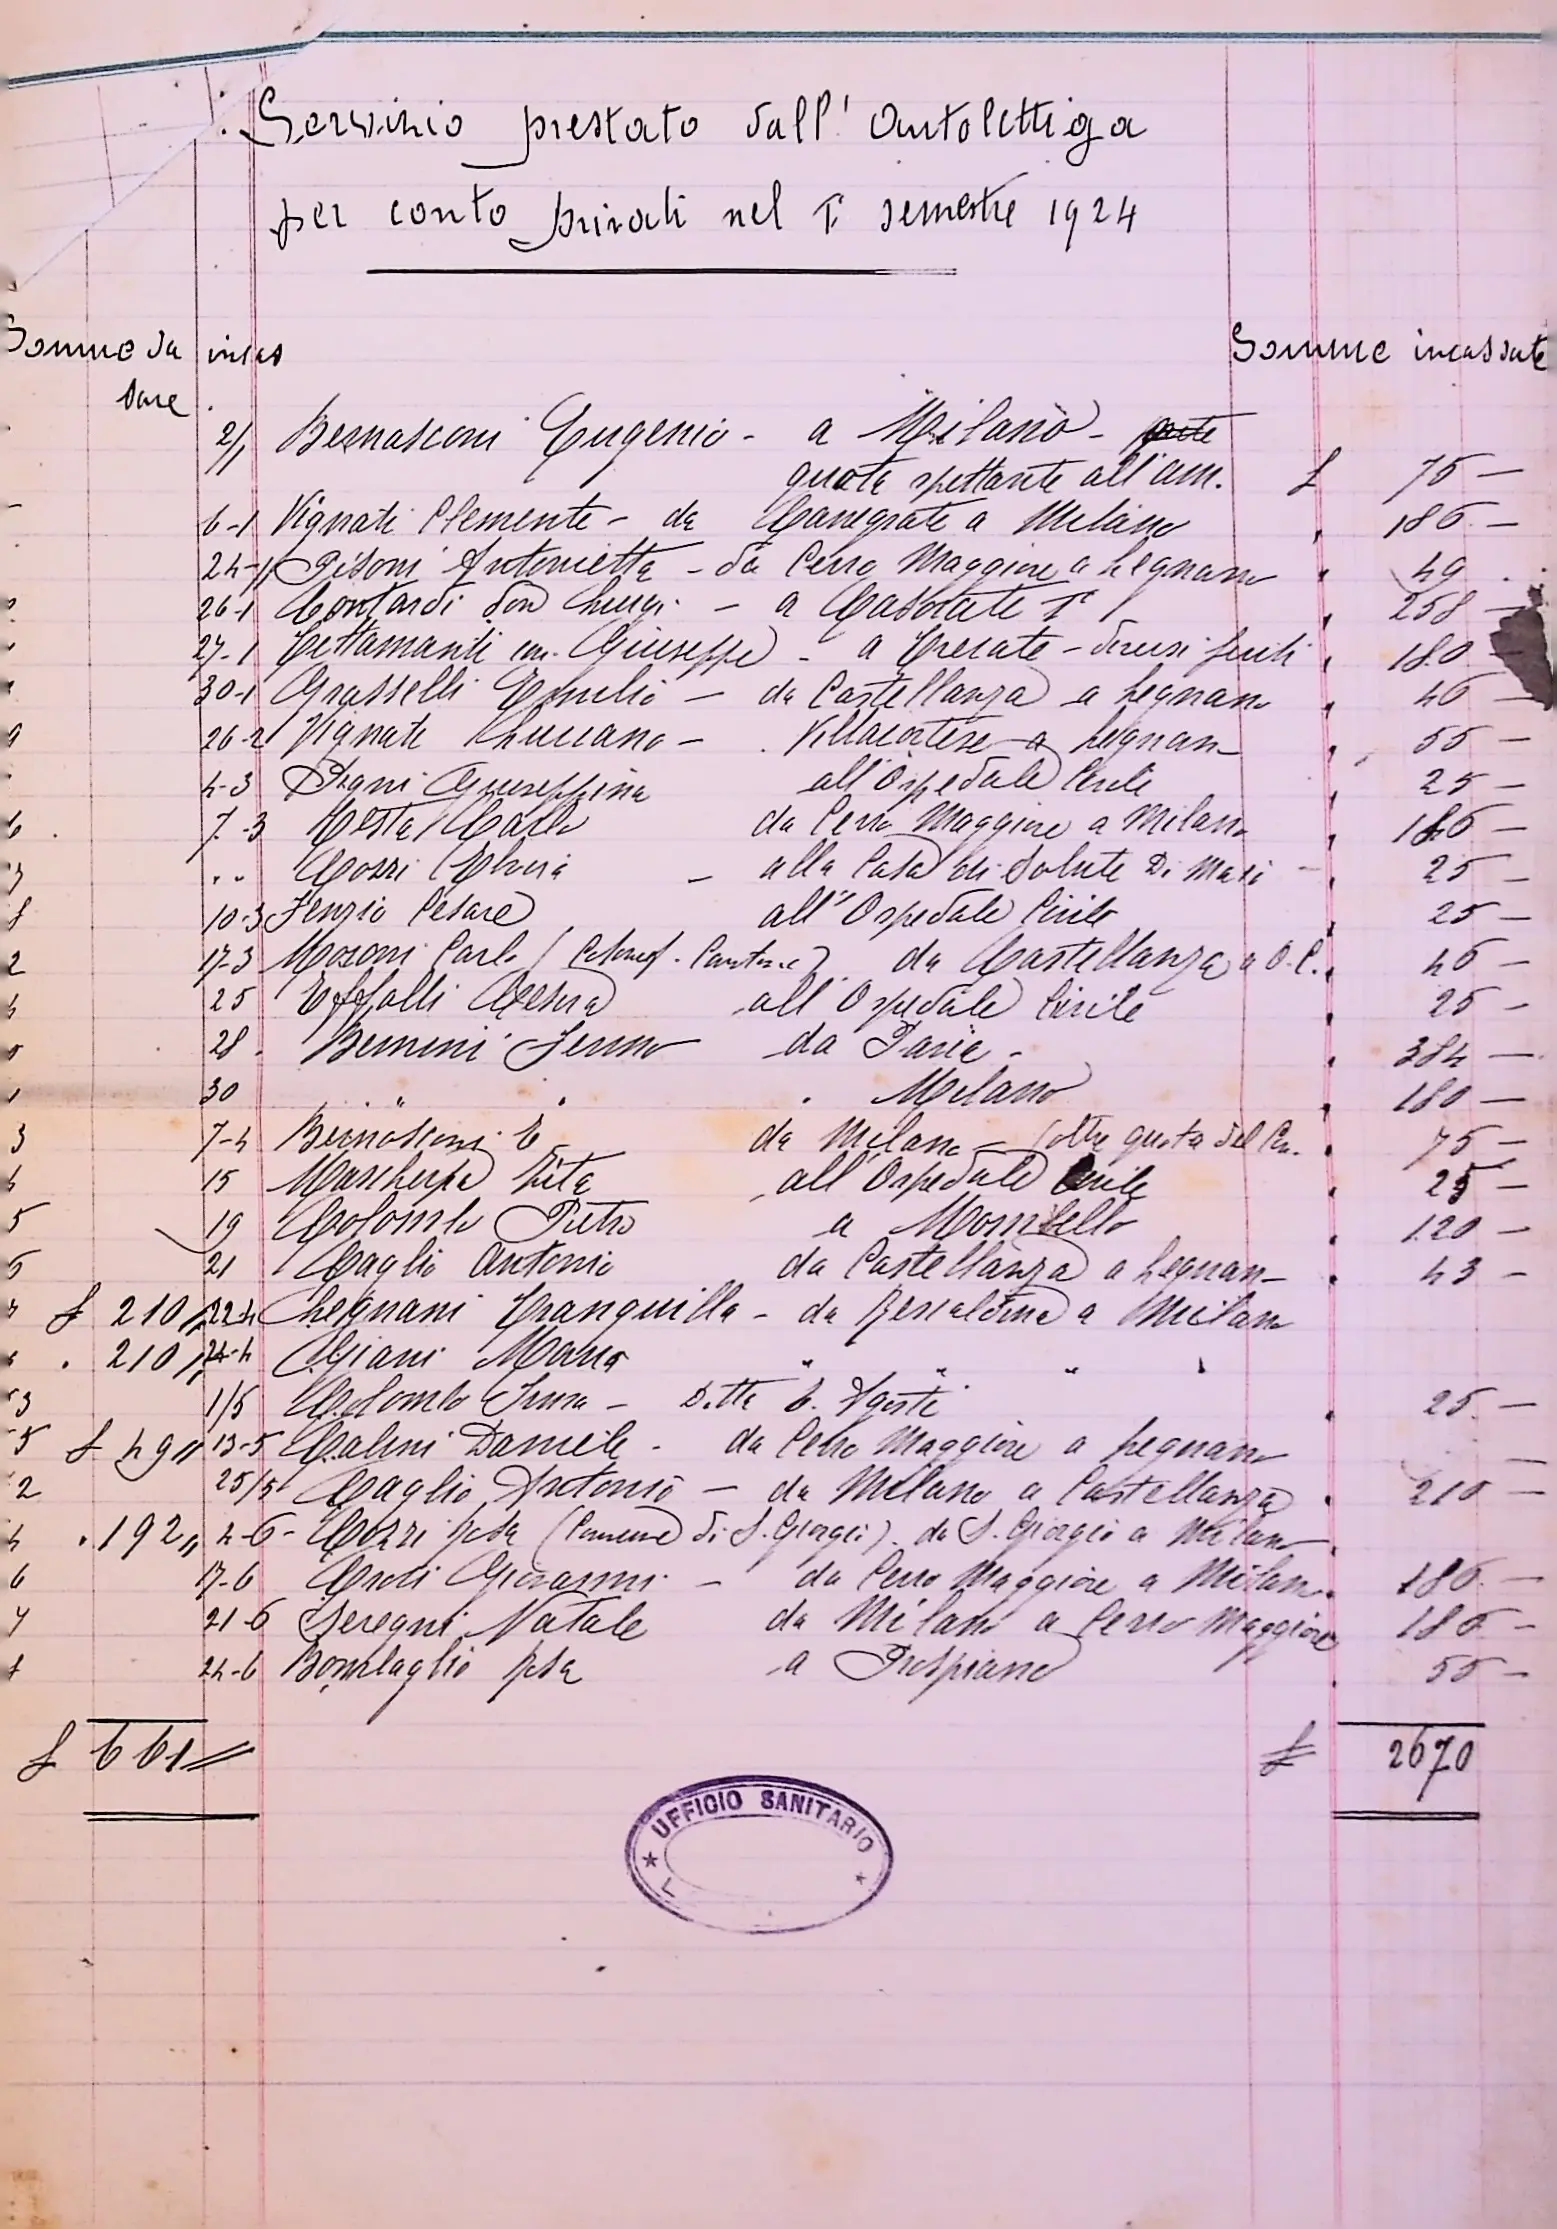 Servizio prestato dall' Autolettiga
per conto privati nel I° semestre 1924
Somme da incas
sare
Somme incassate
2/1 Bernasconi Eugenio - a Milano -
quota spettante all'am. £ 75 -
6-1 Vignati Clemente - da Canegrate a Milano 186 -
24-1 Pisoni Antonietta - da Cerro Maggiore a Legnano 49
26-1 Contardi don Luigi - a Casorate I° 258 -
27-1 Cettamanti Giuseppe - a Trecate - diversi feriti 180
30-1 Grasselli Emilio - da Castellanza a Legnano 46 -
26-2 Vignati Luciano - Villacortese a Legnano 55 -
4-3 Pigni Giuseppina all'Ospedale Civile 25 -
7-3 Testa Carlo da Cerro Maggiore a Milano 186 -
" " Cozzi Elvira - alla Casa di Salute Di Masi 25 -
10-3 Fenzio Cesare all'Ospedale Civile 25 -
17-3 Mozoni Carlo da Castellanza a O.C. 46 -
25 Cesira all'Ospedale Civile 25 -
28 - Bernini Fermo da Pavia - 384 -
30 " " " Milano 180 -
7-4 Bernasconi E da Milano - (oltre quota del 75 -
15 Mascherpa Rita all'Ospedale Civile 25 -
19 Colombo Pietro a Mombello 120 -
21 Caglio Antonio da Castellanza a Legnano 43 -
£ 210 ,, 22-4 Legnani Tranquilla - da Rescaldina a Milano
. 210 ,, 24-4 Giani Maria " " " "
1/5 Colombo Irma - Ditta E. Agosti 25 -
£ 49 ,, 13-5 Daniele - da Cerro Maggiore a Legnano -
25/5 Caglio Antonio - da Milano a Castellanza 210 -
. 192 ,, 4-6 - Cozzi Rosa (Comune di S. Giorgio) - da S. Giorgio a Milano
17-6 Croci Giovanni - da Cerro Maggiore a Milano 186 -
21-6 Seregni Natale da Milano a Cerro Maggiore 186 -
24-6 Bombaglio Rosa a Prospiano 55 -
£ 661 £ 2670
UFFICIO SANITARIO
L